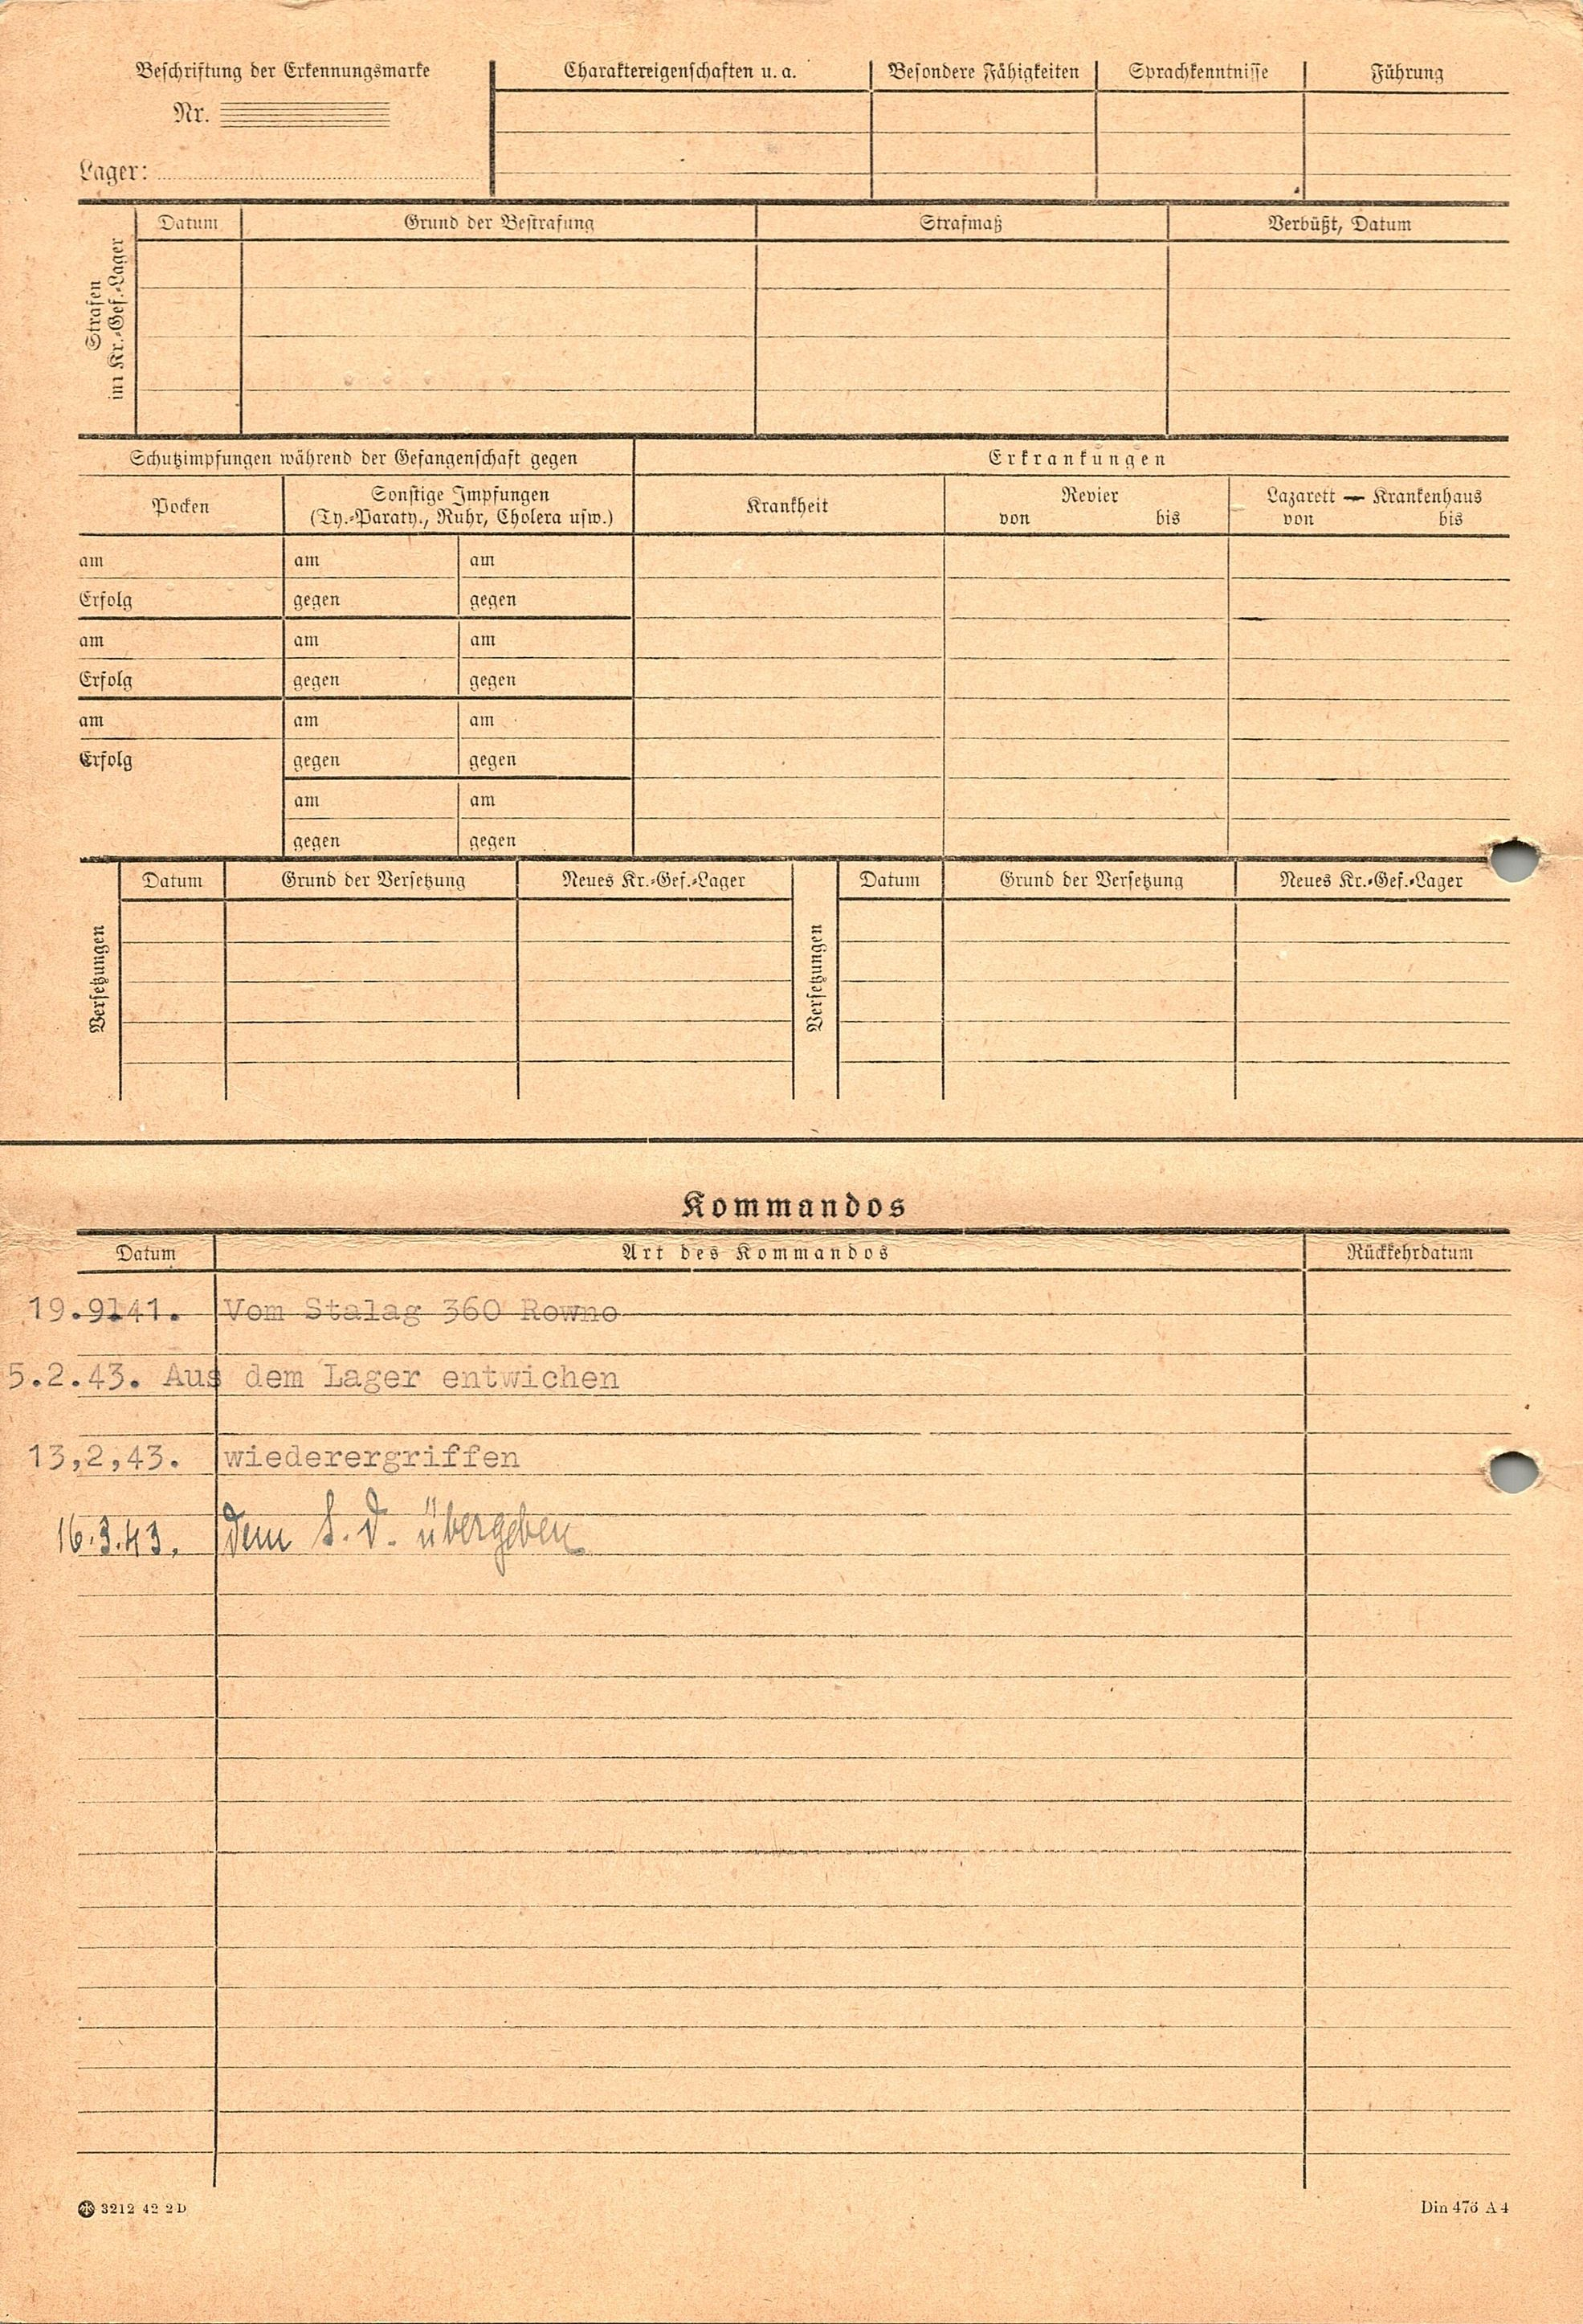 Beschriftung der Erkennungsmarke
Nr.
Lager:
Charaktereigenschaften u. a.
Besondere Fähigkeiten
Sprachkenntnisse
Führung
Strafen
im Kr.-Gef.-Lager
Datum
Grund der Bestrafung
Strafmaß
Verbüßt, Datum
Schutzimpfungen während der Gefangenschaft gegen
Erkrankungen
Pocken
Sonstige Impfungen
(Ty.-Paraty., Ruhr, Cholera usw.)
Krankheit
Revier
von bis
Lazarett — Krankenhaus
von bis
am am am
Erfolg gegen gegen
am am am
Erfolg gegen gegen
am am am
Erfolg gegen gegen
am am
gegen gegen
Versetzungen
Datum
Grund der Versetzung
Neues Kr.-Gef.-Lager
Versetzungen
Datum
Grund der Versetzung
Neues Kr.-Gef.-Lager
Kommandos
Datum
Art des Kommandos
Rückkehrdatum
19.9141. Vom Stalag 360 Rowno
5.2.43. Aus dem Lager entwichen
13,2,43. wiederergriffen
16.3.43. dem S. D. übergeben
3212 42 2D
Din 476 A 4